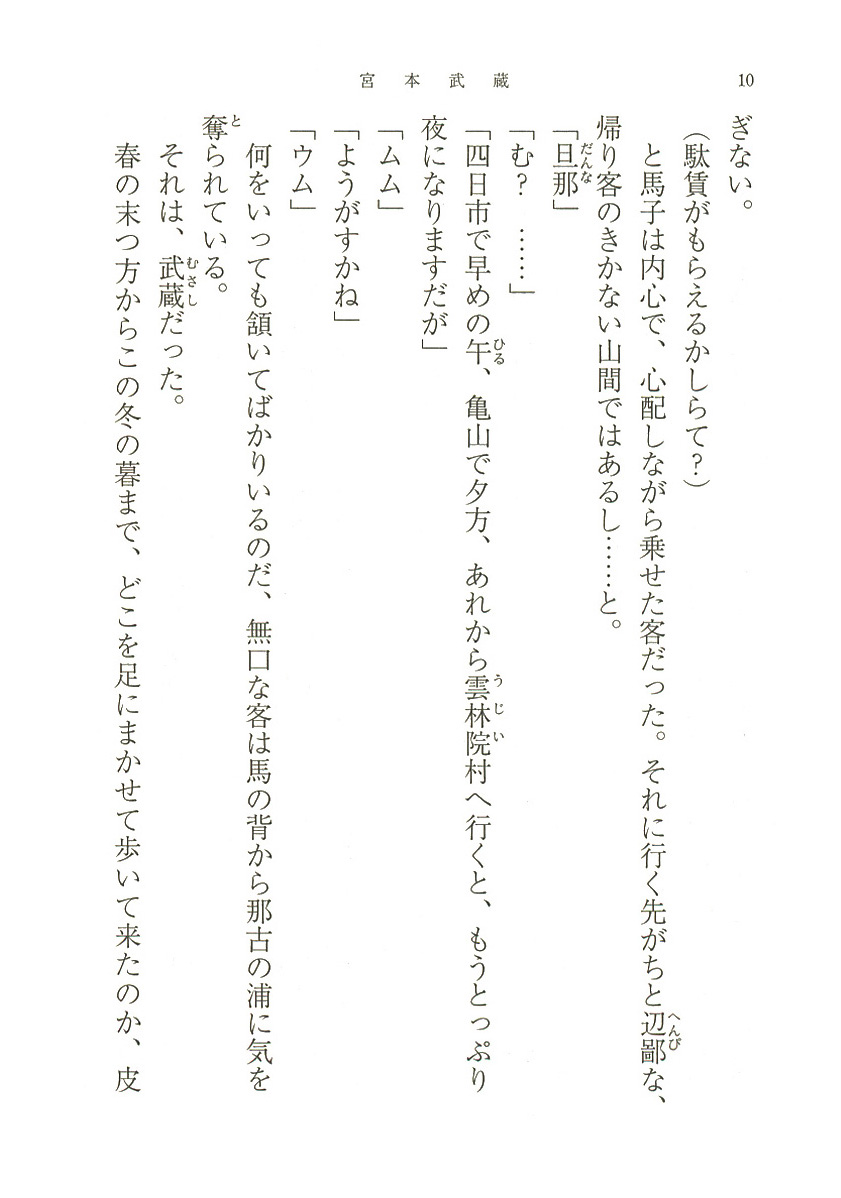 10
宮本武蔵
ぎない。
（駄賃がもらえるかしらて？）
と馬子は内心で、心配しながら乗せた客だった。それに行く先がちと辺鄙な、
帰り客のきかない山間ではあるし……と。
「旦那」
「む？　……」
「四日市で早めの午、亀山で夕方、あれから雲林院村へ行くと、もうとっぷり
夜になりますだが」
「ムム」
「ようがすかね」
「ウム」
何をいっても頷いてばかりいるのだ、無口な客は馬の背から那古の浦に気を
奪られている。
それは、武蔵だった。
春の末つ方からこの冬の暮まで、どこを足にまかせて歩いて来たのか、皮